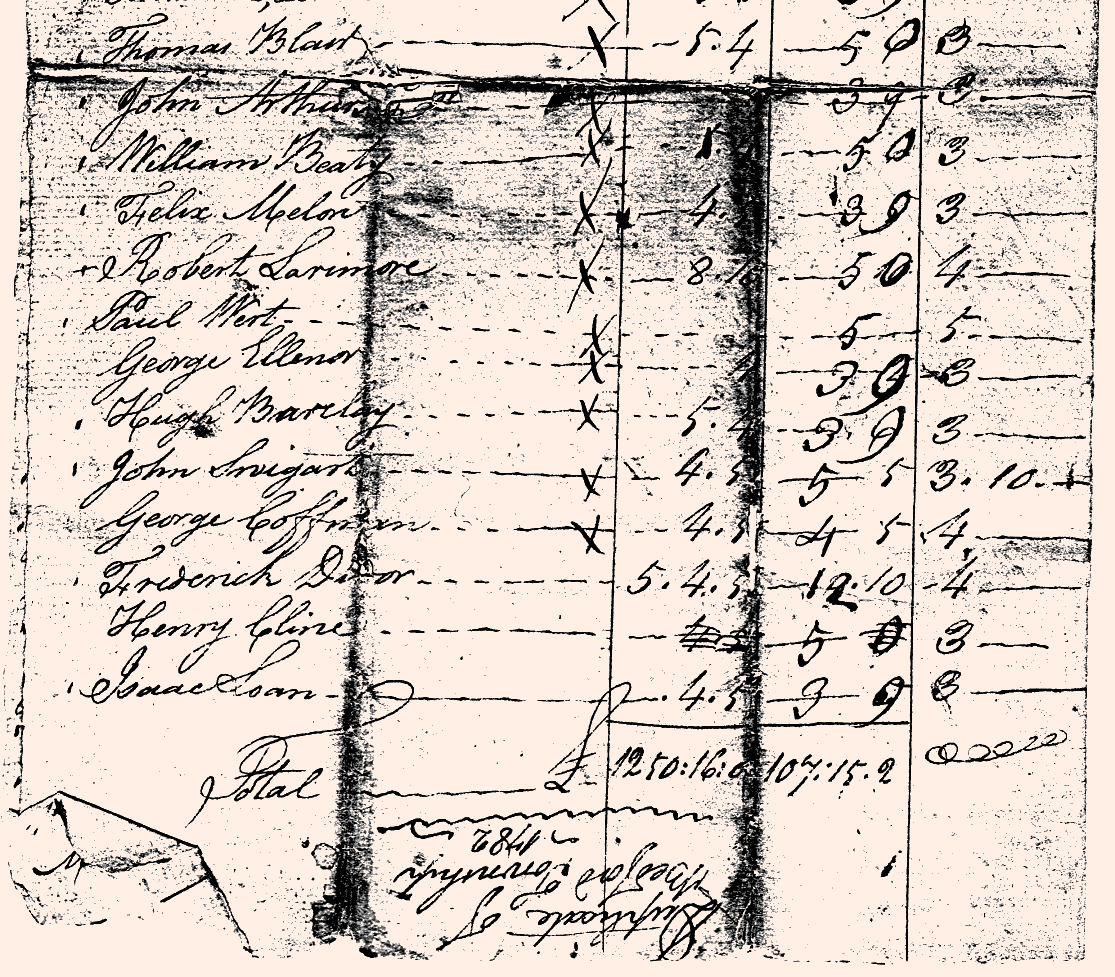 Thomas Blair X 5.4 5 0 3
John Arthur X 3 9 3
William Beaty X 5 0 3
Felix Melon X 4. 3 9 3
Robert Larimore X 8. 5 0 4
Paul Wert X 5 5
George Ellenor X 3 9 3
Hugh Barclay X 5. 3 9 3
John Swigart X 4.5 5 5 3.10.
George Coffman X 4.5 4 5 4
Frederick 5.4.5 12.10 4
Henry Cline 5 0 3
Isaac Loan 4.5 3 9 3
Total £ 1250:16: 107:15.2
Duplicate of
Bedford Township
1782